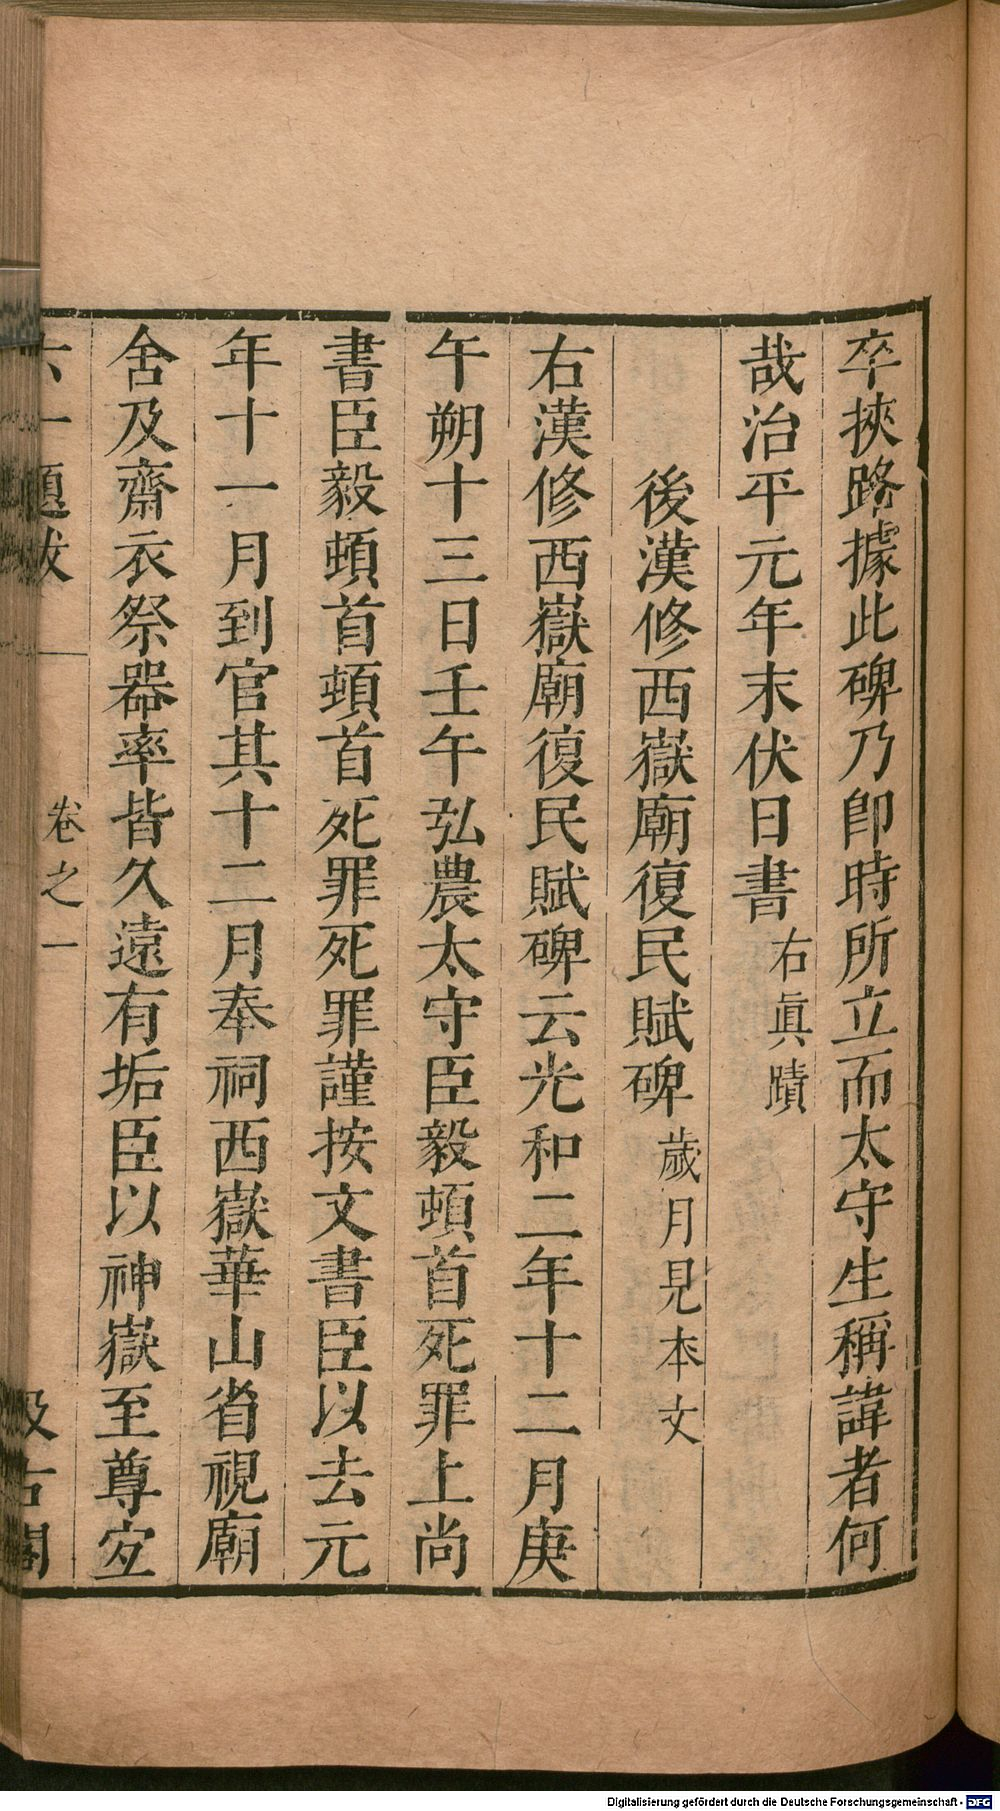 卒挾路據此碑乃卽時所立而太守生稱諱者何
哉治平元年末伏日書右眞蹟
後漢修西嶽廟復民賦碑歲月見本文
右漢修西嶽廟復民賦碑云光和二年十二月庚
午朔十三日壬午弘農太守臣毅頓首死罪上尚
書臣毅頓首頓首死罪死罪謹按文書臣以去元
年十一月到官其十二月奉祠西嶽華山省視廟
舍及齋衣祭器率皆久遠有垢臣以神嶽至尊宐
六一題跋
卷之一
汲古閣
Digitalisierung gefördert durch die Deutsche Forschungsgemeinschaft - DFG